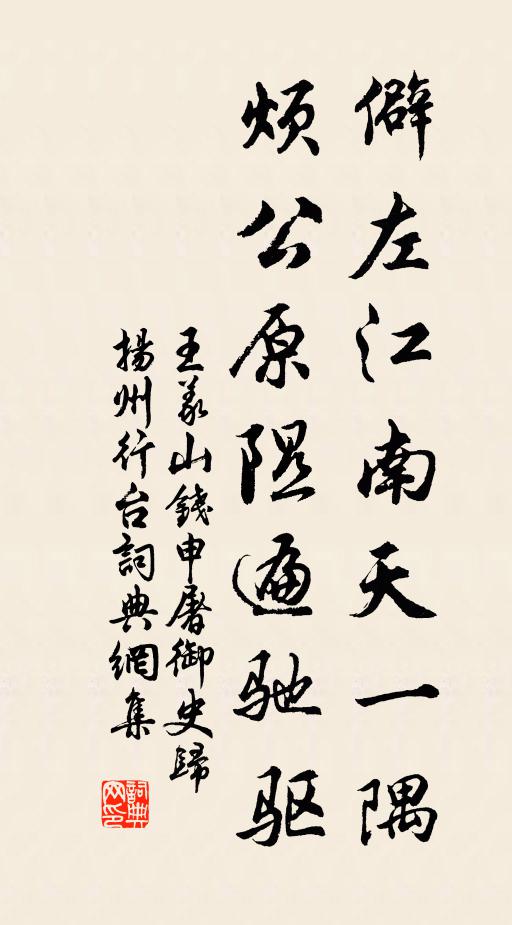 僻左江南天一隅
烦公原隰遍驰驱
王义山錢申屠御史歸
揚州行台詞典網集
詞典网印